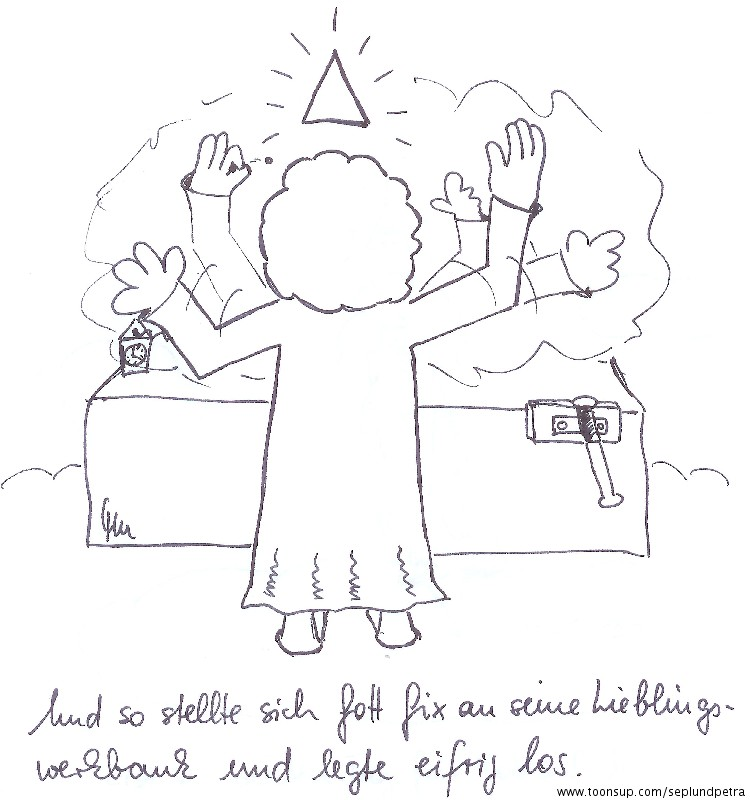 Und so stellte sich Gott fix an seine Lieblings-
werkbank und legte eifrig los.
www.toonsup.com/seplundpetra